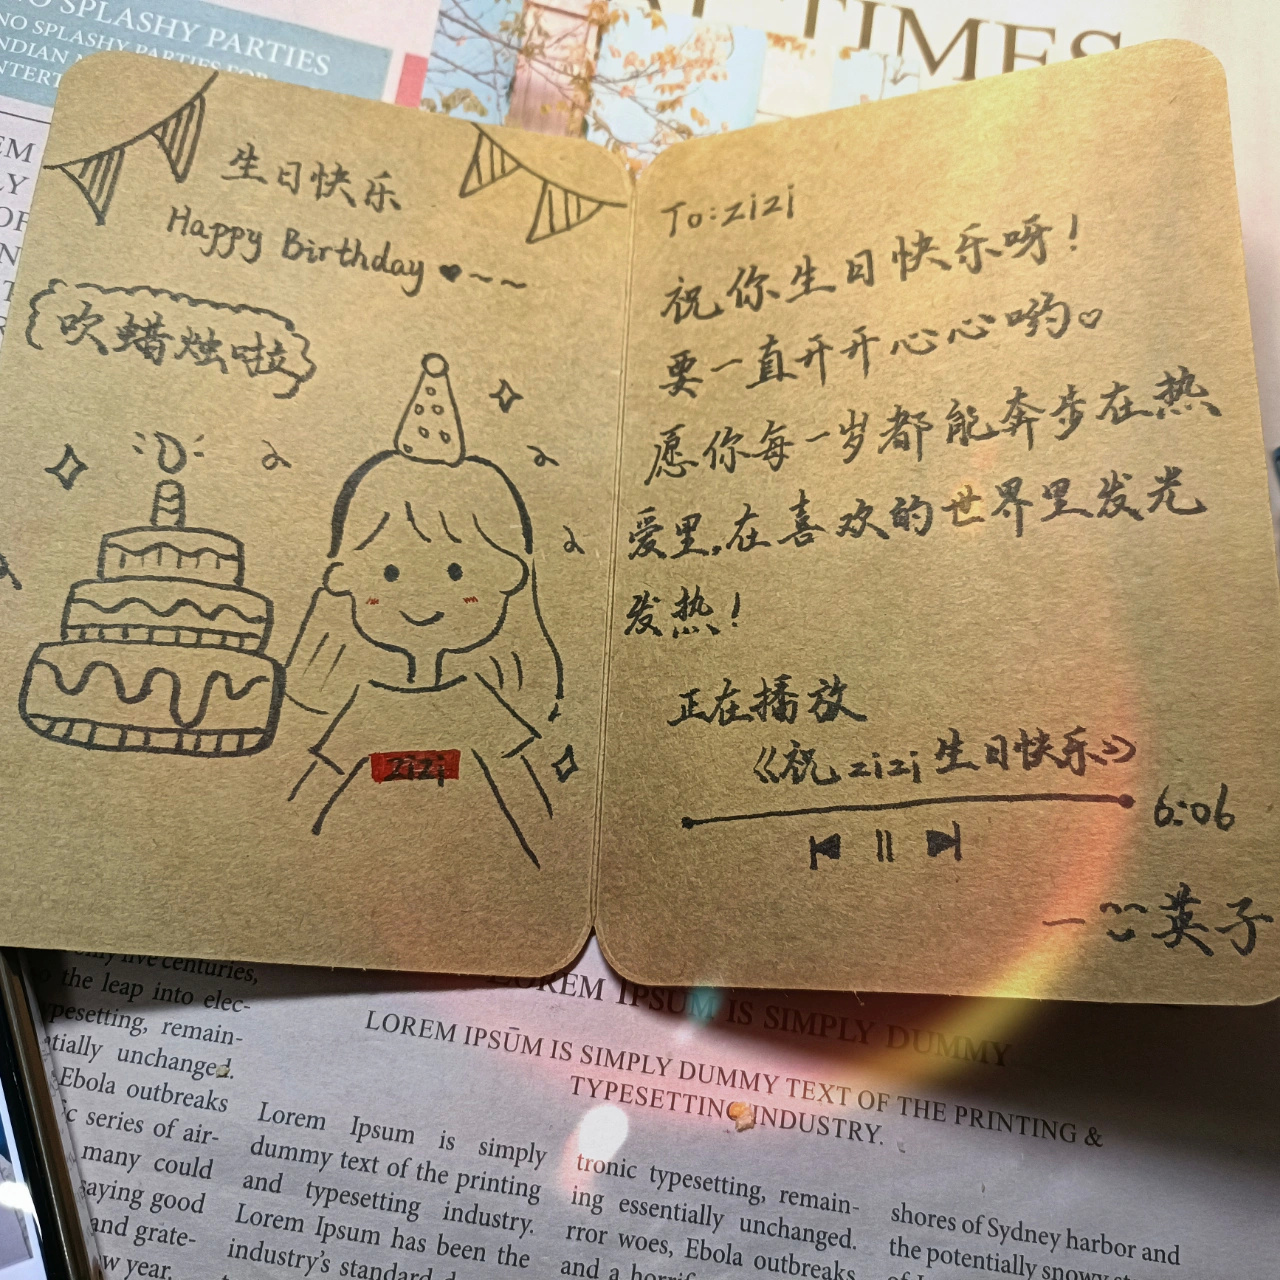 NO SPLASHY PARTIES
NO SPLASHY PARTIES FOR
TIMES
生日快乐
Happy Birthday
吹蜡烛啦
zizi
To:zizi
祝你生日快乐呀!
要一直开开心心哟
愿你每一岁都能奔步在热
爱里,在喜欢的世界里发光
发热!
正在播放
《祝zizi生日快乐》
6:06
一英子
LOREM IPSUM IS SIMPLY DUMMY
LOREM IPSŪM IS SIMPLY DUMMY TEXT OF THE PRINTING &
TYPESETTING INDUSTRY.
only five centuries,
the leap into elec-
typesetting, remain-
tially unchanged.
Ebola outbreaks
ic series of air-
many could
saying good
and grate-
w year.
Lorem Ipsum is simply
dummy text of the printing
and typesetting industry.
Lorem Ipsum has been the
industry's standard
tronic typesetting, remain-
ing essentially unchanged.
rror woes, Ebola outbreaks
and a
shores of Sydney harbor and
the potentially snowy